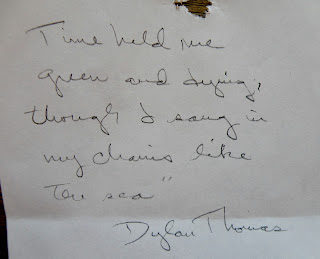 Time held me
green and dying,
though I sang in
my chains like
the sea"
Dylan Thomas